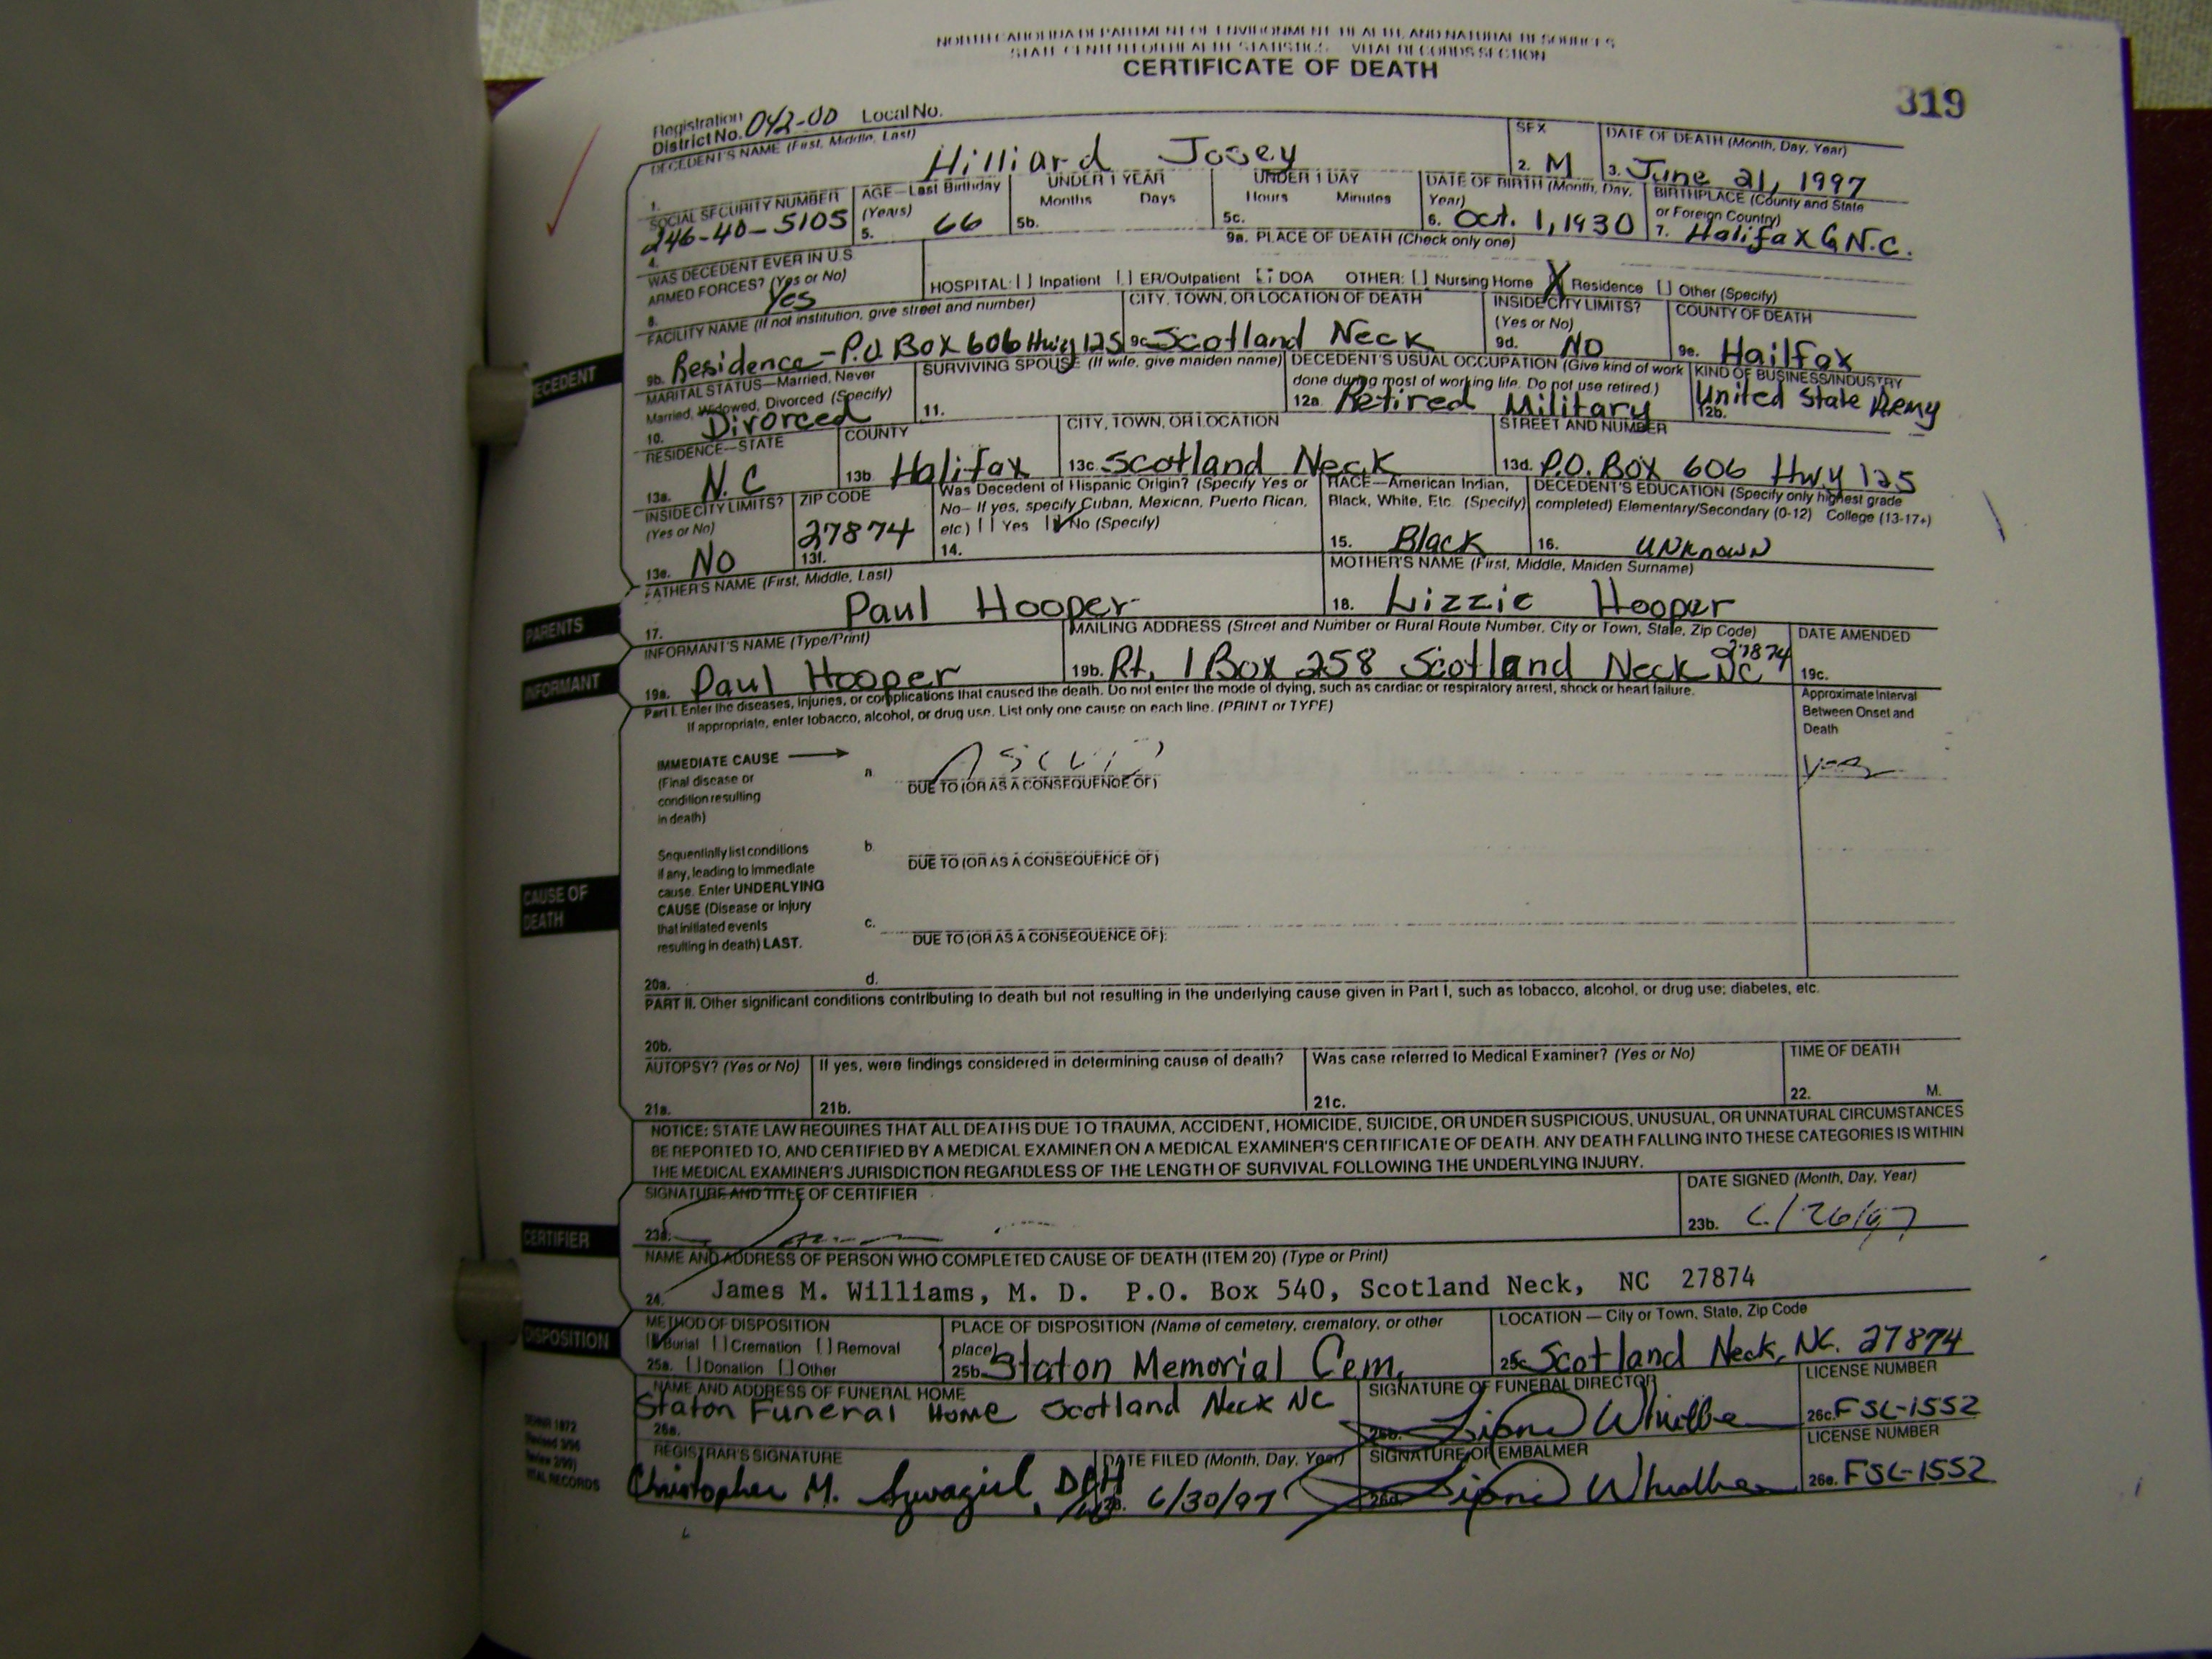 NORTH CAROLINA DEPARTMENT OF ENVIRONMENT, HEALTH, AND NATURAL RESOURCES
STATE CENTER FOR HEALTH STATISTICS - VITAL RECORDS SECTION
CERTIFICATE OF DEATH
319
Registration District No. 042-00 Local No.
DECEDENT'S NAME (First, Middle, Last) SEX DATE OF DEATH (Month, Day, Year)
1. Hilliard Josey 2. M 3. June 21, 1997
SOCIAL SECURITY NUMBER AGE—Last Birthday (Years) UNDER 1 YEAR Months Days UNDER 1 DAY Hours Minutes DATE OF BIRTH (Month, Day, Year) BIRTHPLACE (County and State or Foreign Country)
4. 246-40-5105 5. 66 5b. 5c. 6. Oct. 1, 1930 7. Halifax Co N.C.
WAS DECEDENT EVER IN U.S. ARMED FORCES? (Yes or No) 9a. PLACE OF DEATH (Check only one)
8. Yes HOSPITAL: [ ] Inpatient [ ] ER/Outpatient [ ] DOA OTHER: [ ] Nursing Home X Residence [ ] Other (Specify)
FACILITY NAME (If not institution, give street and number) CITY, TOWN, OR LOCATION OF DEATH INSIDE CITY LIMITS? (Yes or No) COUNTY OF DEATH
9b. Residence - P.O Box 606 Hwy 125 9c. Scotland Neck 9d. NO 9e. Hailfax
MARITAL STATUS—Married, Never Married, Widowed, Divorced (Specify) SURVIVING SPOUSE (If wife, give maiden name) DECEDENT'S USUAL OCCUPATION (Give kind of work done during most of working life. Do not use retired.) KIND OF BUSINESS/INDUSTRY
10. Divorced 11. 12a. Retired Military 12b. United State Army
RESIDENCE—STATE COUNTY CITY, TOWN, OR LOCATION STREET AND NUMBER
13a. N.C 13b. Halifax 13c. Scotland Neck 13d. P.O. Box 606 Hwy 125
INSIDE CITY LIMITS? (Yes or No) ZIP CODE Was Decedent of Hispanic Origin? (Specify Yes or No— If yes, specify Cuban, Mexican, Puerto Rican, etc.) [ ] Yes [✓] No (Specify) RACE—American Indian, Black, White, Etc. (Specify) DECEDENT'S EDUCATION (Specify only highest grade completed) Elementary/Secondary (0-12) College (13-17+)
13e. NO 13f. 27874 14. 15. Black 16. UNKNOWN
FATHER'S NAME (First, Middle, Last) MOTHER'S NAME (First, Middle, Maiden Surname)
17. Paul Hooper 18. Lizzie Hooper
INFORMANT'S NAME (Type/Print) MAILING ADDRESS (Street and Number or Rural Route Number, City or Town, State, Zip Code) DATE AMENDED
19a. Paul Hooper 19b. Rt. 1 Box 258 Scotland Neck NC 27874 19c.
Part I. Enter the diseases, injuries, or complications that caused the death. Do not enter the mode of dying, such as cardiac or respiratory arrest, shock or heart failure.
If appropriate, enter tobacco, alcohol, or drug use. List only one cause on each line. (PRINT or TYPE)
Approximate Interval Between Onset and Death
IMMEDIATE CAUSE
(Final disease or condition resulting in death)
a.
DUE TO (OR AS A CONSEQUENCE OF)
Sequentially list conditions if any, leading to immediate cause. Enter UNDERLYING CAUSE (Disease or injury that initiated events resulting in death) LAST.
b.
DUE TO (OR AS A CONSEQUENCE OF)
c.
DUE TO (OR AS A CONSEQUENCE OF):
20a. d.
PART II. Other significant conditions contributing to death but not resulting in the underlying cause given in Part I, such as tobacco, alcohol, or drug use; diabetes, etc.
20b.
AUTOPSY? (Yes or No) If yes, were findings considered in determining cause of death? Was case referred to Medical Examiner? (Yes or No) TIME OF DEATH
21a. 21b. 21c. 22. M.
NOTICE: STATE LAW REQUIRES THAT ALL DEATHS DUE TO TRAUMA, ACCIDENT, HOMICIDE, SUICIDE, OR UNDER SUSPICIOUS, UNUSUAL, OR UNNATURAL CIRCUMSTANCES
BE REPORTED TO, AND CERTIFIED BY A MEDICAL EXAMINER ON A MEDICAL EXAMINER'S CERTIFICATE OF DEATH. ANY DEATH FALLING INTO THESE CATEGORIES IS WITHIN
THE MEDICAL EXAMINER'S JURISDICTION REGARDLESS OF THE LENGTH OF SURVIVAL FOLLOWING THE UNDERLYING INJURY.
SIGNATURE AND TITLE OF CERTIFIER DATE SIGNED (Month, Day, Year)
23a. 23b. 6/26/97
NAME AND ADDRESS OF PERSON WHO COMPLETED CAUSE OF DEATH (ITEM 20) (Type or Print)
24. James M. Williams, M. D. P.O. Box 540, Scotland Neck, NC 27874
METHOD OF DISPOSITION PLACE OF DISPOSITION (Name of cemetery, crematory, or other place) LOCATION — City or Town, State, Zip Code
[✓] Burial [ ] Cremation [ ] Removal
25a. [ ] Donation [ ] Other 25b. Staton Memorial Cem. 25c. Scotland Neck, NC. 27874
NAME AND ADDRESS OF FUNERAL HOME SIGNATURE OF FUNERAL DIRECTOR LICENSE NUMBER
26a. Staton Funeral Home Scotland Neck NC 26b. 26c. FSL-1552
REGISTRAR'S SIGNATURE DATE FILED (Month, Day, Year) SIGNATURE OF EMBALMER LICENSE NUMBER
Christopher M. 6/30/97 26d. 26e. FSL-1552
DECEDENT
PARENTS
INFORMANT
CAUSE OF DEATH
CERTIFIER
DISPOSITION
VITAL RECORDS